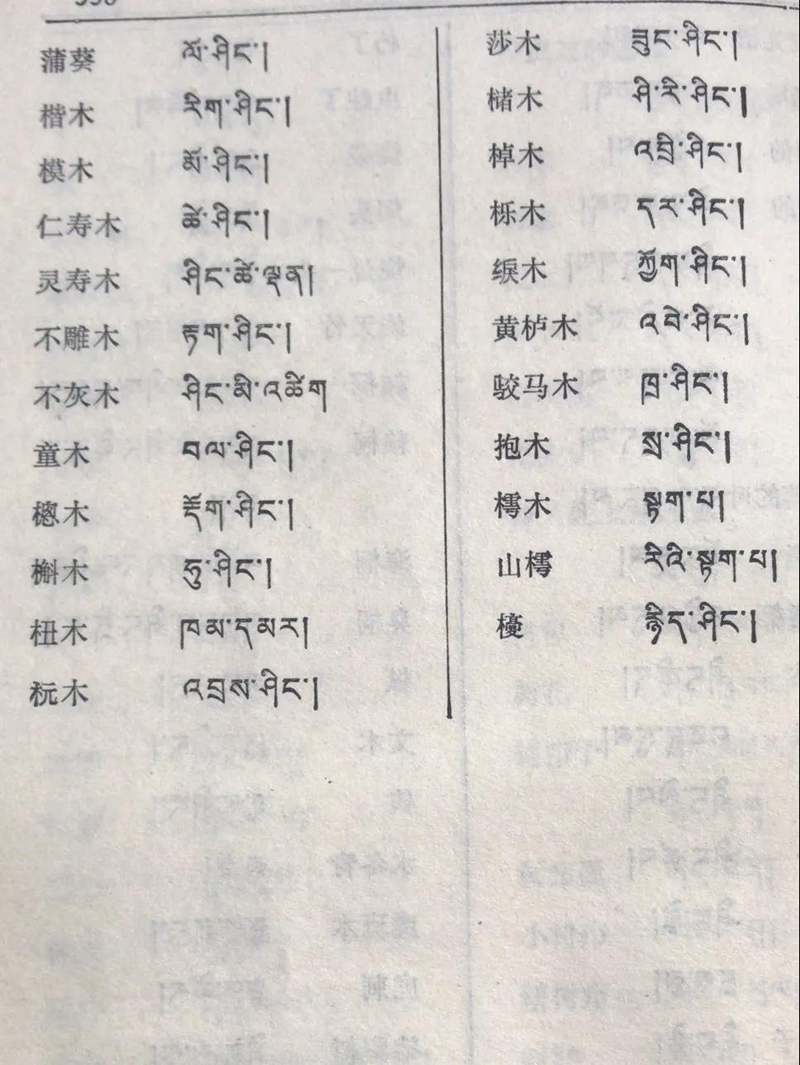 蒲葵 ལོ་ཤིང་།
楷木 རིག་ཤིང་།
模木 མོ་ཤིང་།
仁寿木 ཚེ་ཤིང་།
灵寿木 ཤིང་ཚེ་ལྡན།
不雕木 རྟག་ཤིང་།
不灰木 ཤིང་མི་འཚིག
童木 བལ་ཤིང་།
樬木 རྡོག་ཤིང་།
槲木 ཧུ་ཤིང་།
杻木 ཁམ་དམར།
杬木 འབྲས་ཤིང་།
莎木 ཟུང་ཤིང་།
槠木 ཤི་རི་ཤིང་།
棹木 འབྲི་ཤིང་།
栎木 དར་ཤིང་།
綟木 ཀྱོག་ཤིང་།
黄栌木 འབེ་ཤིང་།
驳马木 ཁྲ་ཤིང་།
抱木 སྲ་ཤིང་།
樗木 སྟག་པ།
山樗 རིའི་སྟག་པ།
ཉིད་ཤིང་།